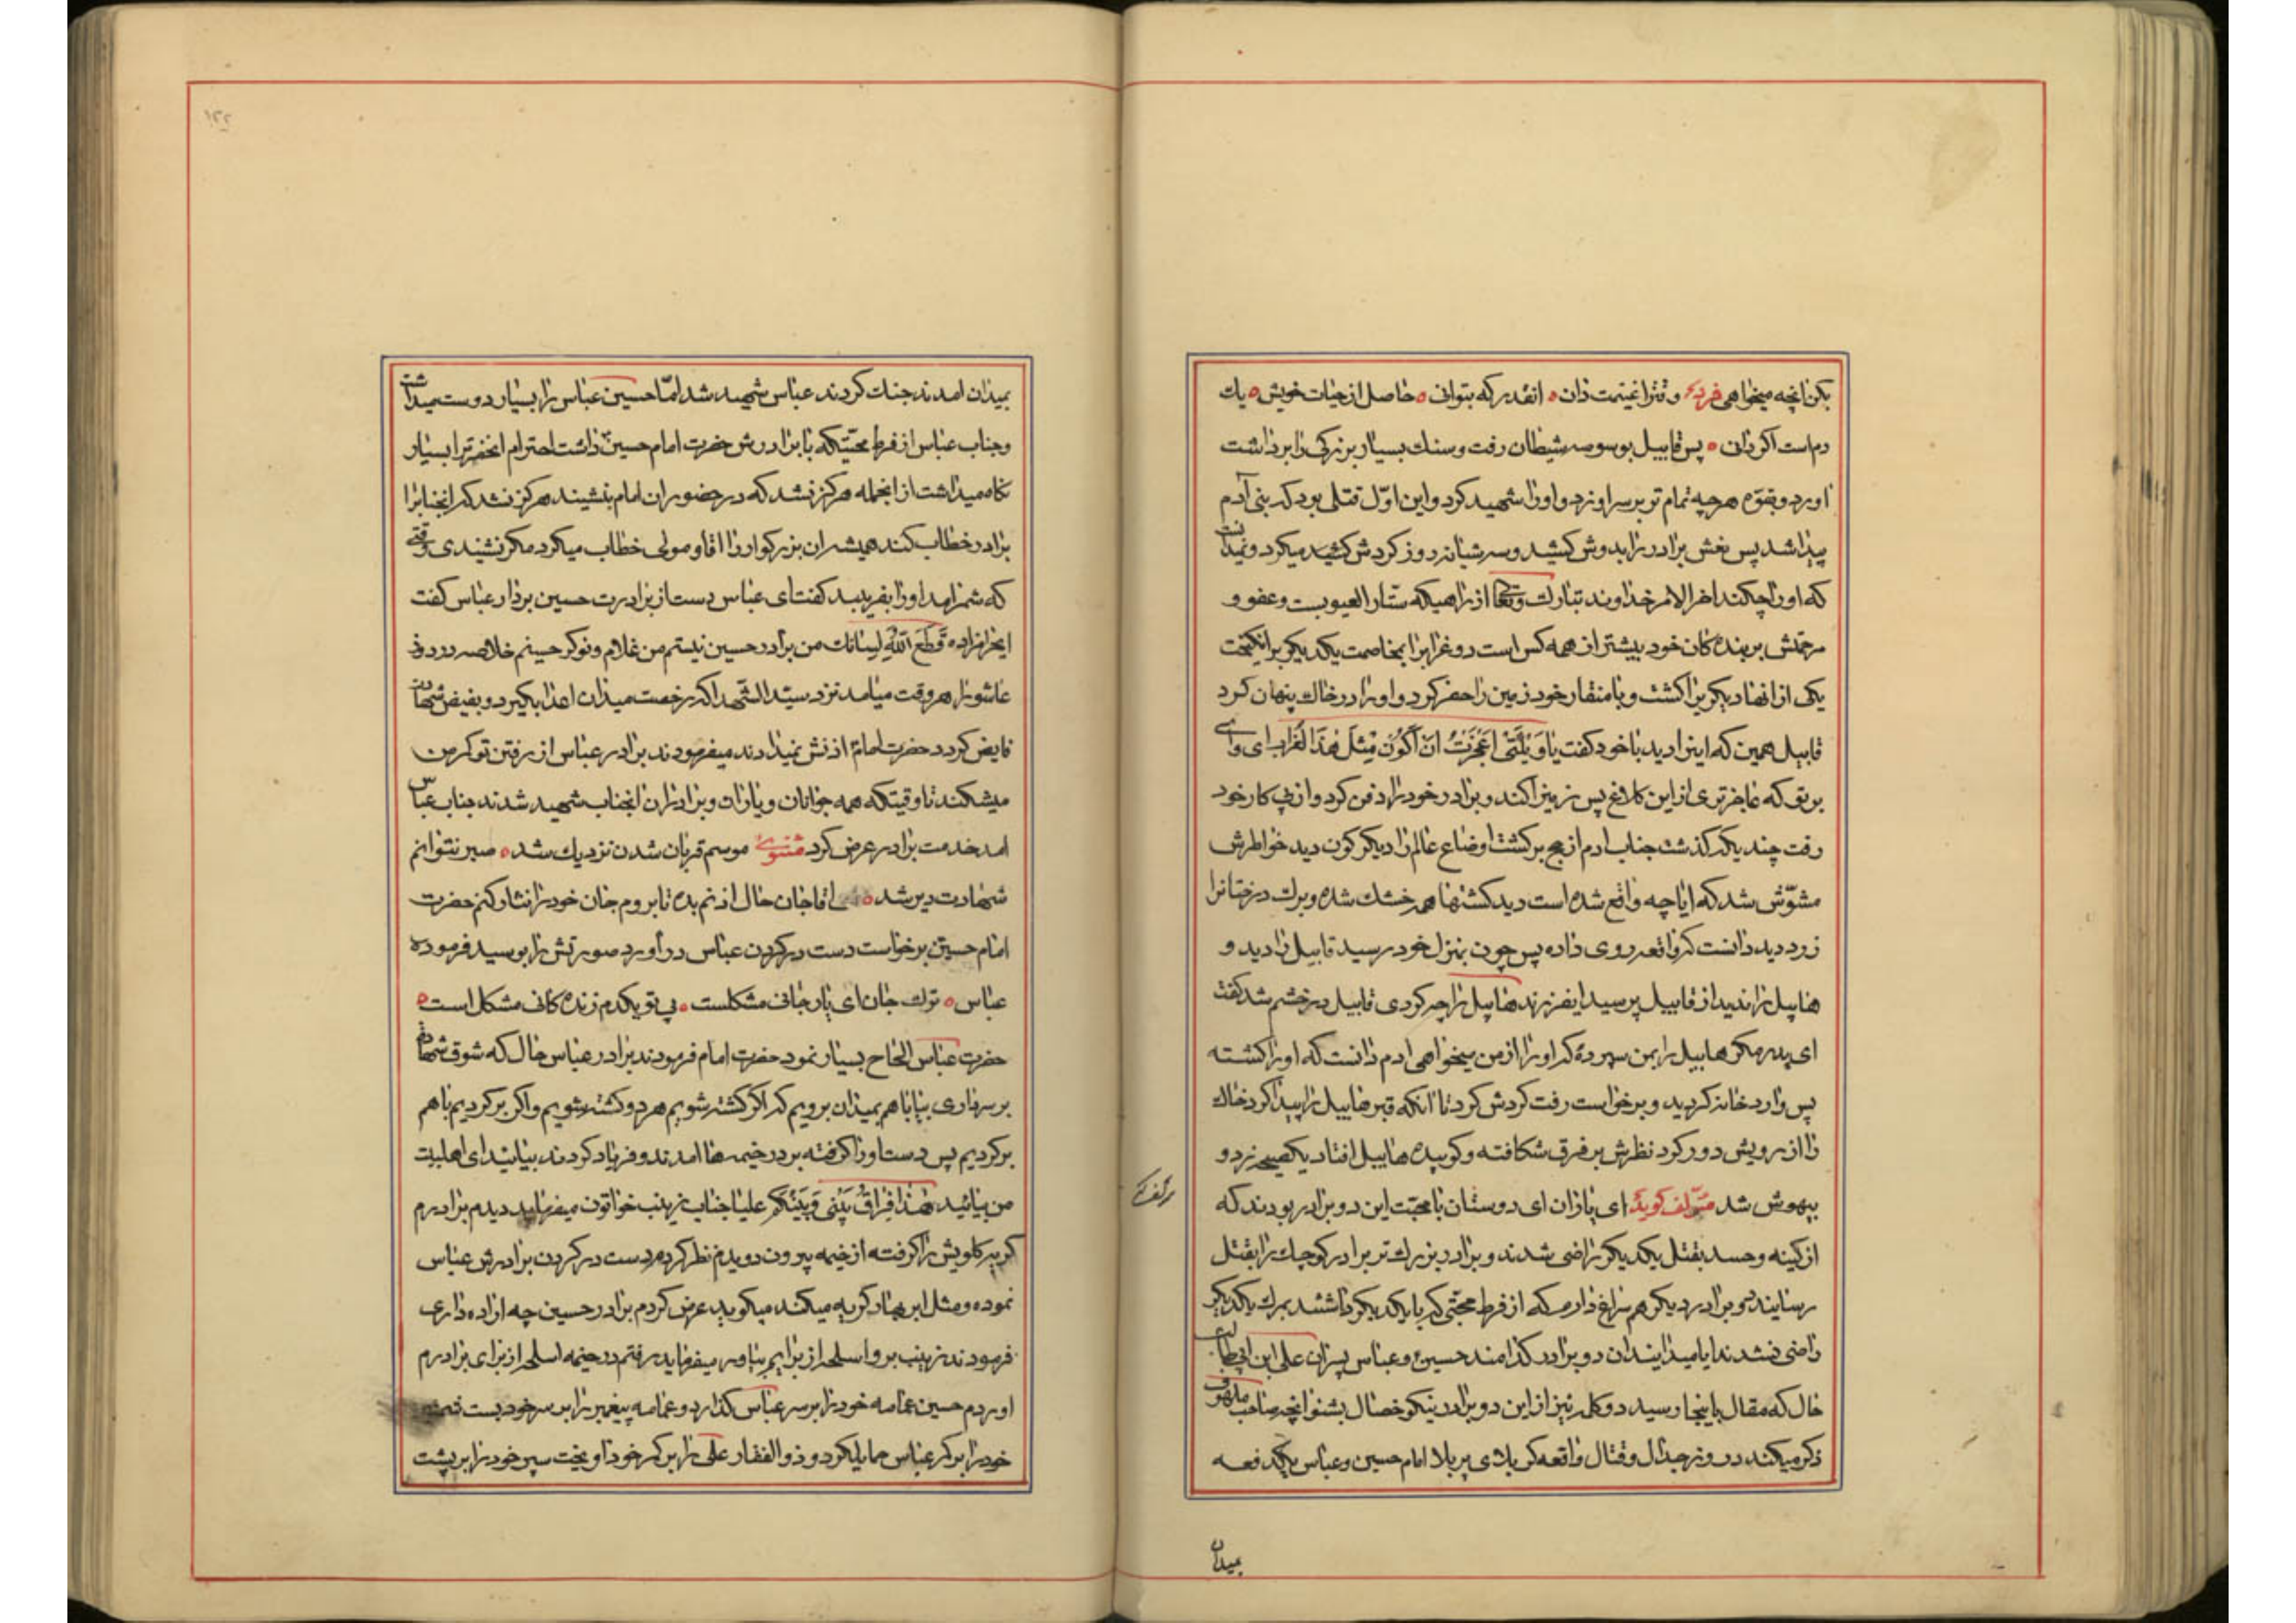 بکن انچه میخواهی فرد وقترا غنیمت دان ه انقدر که بتوانی ه حاصل از حیات خویش ه یك
دم است اکر دانی ه پس قابیل بوسوسه شیطان رفت و سنك بسیار بزرکی را برداشت
اورد و بقوّه هرچه تمام تر بر سر او زد و او را شهید کرد و این اوّل قتلی بود که بنی آدم
پیدا شد پس نعش برادر را بدوش کشید و سه شبانه روز کردش کشید میکرد و نمیدانست
که او را چکند اخر الامر خداوند تبارك وتعا از راهیکه ستار العیوبست و عفو و
مرحمتش بر بنده کان خود بیشتر از همه کس است دو غرابرا بمخاصمت یکدیکر برانکیخت
یکی از انها دیکریرا کشت و با منقار خود زمین را حفر کرد و او را در خاك پنهان کرد
قابیل همین که اینرا دید با خود کفت یا وَیْلَتی اَعَجَزْتُ اَنْ اَکُونَ مِثْلَ هٰذَا الْغُرابِ ای وای
بر تو که عاجزتری از این کلاغ پس زمینرا کند و برادر خود را دفن کرد و از پی کار خود
رفت چند یکه کذشت جناب ادم از حج برکشت اوضاع عالم را دیکرکون دید خواطرش
مشوّش شد که ایا چه واقع شده است دید کشتها همه خشك شده و برك درختانرا
زرد دید دانست که واقعه روی داده پس چون بمنزل خود رسید قابیل را دید و
هابیل را ندید از قابیل پرسید ایفرزند هابیل را چه کردی قابیل در خشم شد کفت
ای پدر مکر هابیل را بمن سپردهٔ که او را از من میخواهی ادم دانست که او را کشته
پس وارد خانه کردید و برخواست رفت کردش کرد تا انکه قبر هابیل را پیدا کرد خاك
را از رویش دور کرد نظرش بر فرق شکافته و کوبیده هابیل افتاد یکصیحه زد و
بیهوش شد مؤلف کوید ای یاران ای دوستان با محبّت این دو برادر بودند که
از کینه و حسد بقتل یکدیکر راضی شدند و برادر بزرك تر برادر کوچك را بقتل
رسانید دو برادر دیکر هم سراغ دارم که از فرط محبّتی که با یکدیکر داشتند بمرك یکدیکر
راضی نشدند ایا میدانید ان دو برادر کدامند حسین و عباس پسران علی ابن ابیطالب
حال که مقال باینجا رسید دو کلمه نیز از این دو برادر نیکو خصال بشنو انچه صاحب ملهوف
ذکر میکند در روز جدال و قتال واقعه کربلای پر بلا امام حسین و عباس یکدفعه
میدان
بمیدان امدند جنك کردند عباس شهید شد امّا حسین عباس را بسیار دوست میداشت
و جناب عباس از فرط محبّتیکه با برادرش حضرت امام حسین داشت احترام انحضرترا بسیار
نکاه میداشت از انجمله هرکز نشد که در حضور ان امام بنشیند هرکز نشد که انجنابرا
برادر خطاب کند همیشه ان بزرکوار را اقا و مولی خطاب میکرد مکر نشنیدی وقتی
که شمر امد او را بفریبد کفت ای عباس دست از برادرت حسین بردار عباس کفت
ایحرامزاده قَطَعَ اللّهُ لِسانَك من برادر حسین نیستم من غلام و نوکر حسینم خلاصه در روز
عاشورا هر وقت میامد نزد سیّد الشّهدا که رخصت میدان اعدا بکیرد و بفیض شهادت
فایض کردد حضرت امام اذنش نمیدادند میفرمودند برادر عباس از رفتن تو کمر من
میشکند تا وقتیکه همه جوانان و یاران و برادران انجناب شهید شدند جناب عباس
امد خدمت برادر عرض کرد مثنوی موسم قربان شدن نزدیك شد ه صبر نتوانم
شهادت دیر شد ه اقاجان حال اذنم بده تا بروم جان خود را نثار کنم حضرت
امام حسین برخواست دست در کردن عباس دراورد صورتش را بوسید فرموده
عباس ه ترك جان ای یار جانی مشکلست ه بی تو یکدم زنده کانی مشکل است ه
حضرت عباس الحاح بسیار نمود حضرت امام فرمودند برادر عباس حال که شوق شهادت
بر سر داری بیا با هم بمیدان برویم که اکر کشته شویم هر دو کشته شویم و اکر برکردیم با هم
برکردیم پس دست او را کرفته بر در خیمه ها امدند و فریاد کردند بیائید ای اهلبیت
من بیائید هٰذا فِراقُ بَیْنی وَ بَیْنَکُمْ علیا جناب زینب خواتون میفرماید دیدم برادرم
کریه کلویش را کرفته از خیمه بیرون دویدم نظر کردم دست در کردن برادرش عباس
نموده و مثل ابر بهار کریه میکند میکوید عرض کردم برادر حسین چه اراده داری
فرمودند زینب برو اسلحه از برایم بیاور میفرماید رفتم در خیمه اسلحه از برای برادرم
اوردم حسین عمامه خود را بر سر عباس کذارد و عمامه پیغمبر را بر سر خود بست
خود را بر کمر عباس حمایل کرد و ذوالفقار علی را بر کمر خود اویخت سپر خود را بر پشت